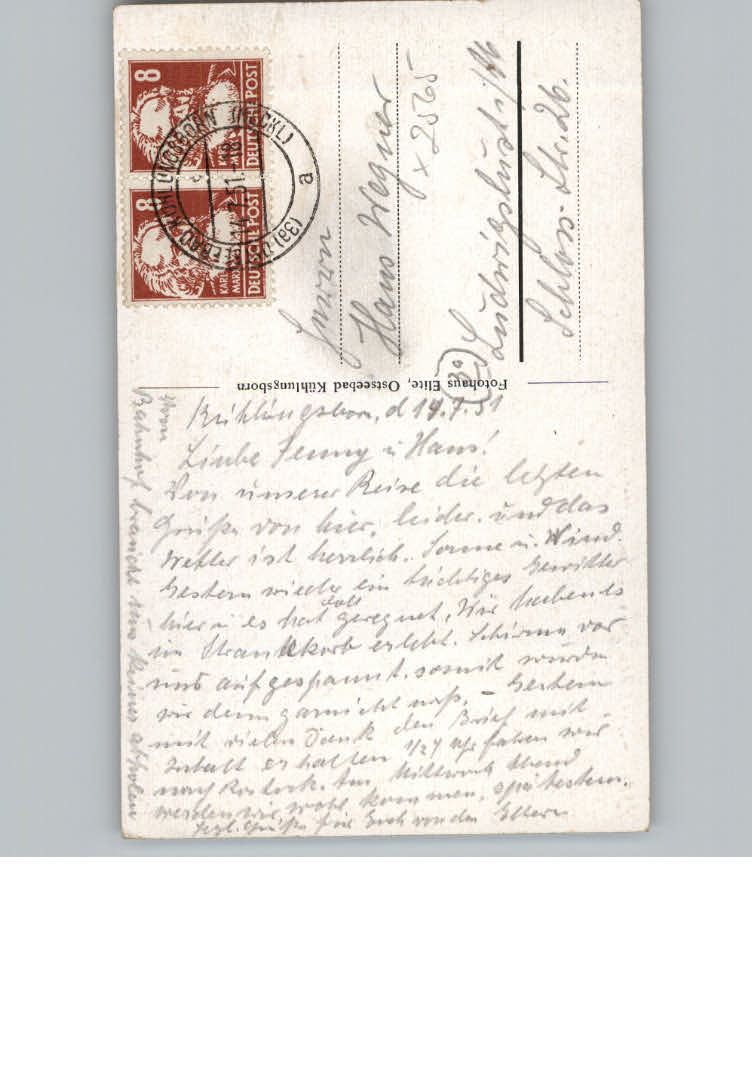 8
KARL
MARX
DEUTSCHE POST
8
KARL
MARX
DEUTSCHE POST
(3a) OSTSEEBAD KÜHLUNGSBORN (MECKL)
14.7.51.-18
a
Herrn
Hans Wegner
x 2565
(3a) Ludwigslust i/M
Schloss-Str. 26.
Fotohaus Elite, Ostseebad Kühlungsborn
Kühlungsborn, d 14.7.51
Liebe Jenny u Hans!
Von unserer Reise die letzten
Grüße von hier, leider. und das
Wetter ist herrlich. Sonne u. Wind.
Gestern wieder ein tüchtiges Gewitter
hier u es hat doll geregnet, Wir haben es
im Strandkorb erlebt. Schirme vor
uns aufgespannt, somit wurden
wir denn garnicht naß. - Gestern
mit vielen Dank den Brief mit
Inhalt erhalten 1/24 Uhr fahren wir
nach Rostock. Am Mittwoch Abend
werden wir wohl kommen, spätestens.
Hzl. Grüße für Euch von den Eltern
Vom
Bahnhof braucht uns keiner abholen